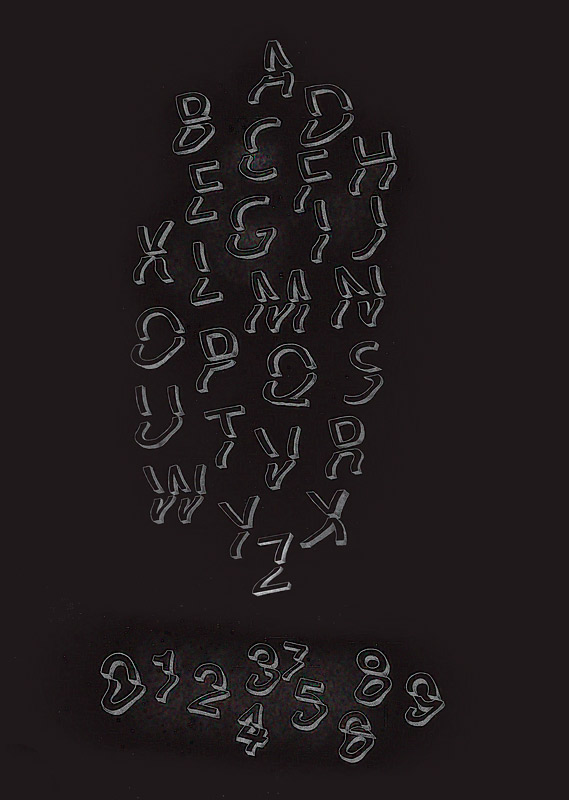 A
B D
C H
E F
G I J
K L
M N
O P Q S
U T V R
W Y X
Z
0 1 2 3 7 8 9
4 5 6